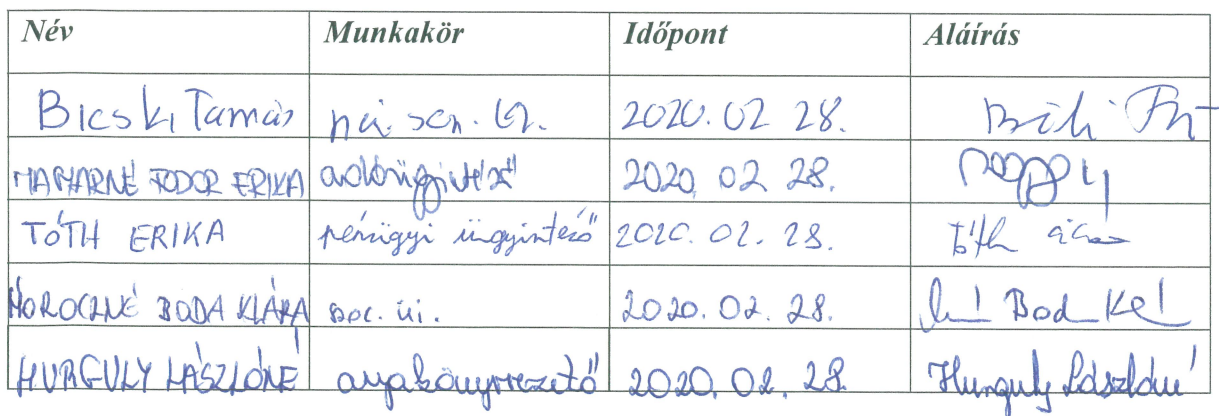 Név Munkakör Időpont Aláírás
Bicski Tamás 2020.02 28.
MAGYARNÉ FODOR ERIKA adóügyintéző 2020. 02. 28.
TÓTH ERIKA pénzügyi ügyintéző 2020. 02. 28. Tóth
BODA KLÁRA soc. üi. 2020. 02. 28.
HURGULY LÁSZLÓNÉ anyakönyvvezető 2020. 02. 28. Hurguly Lászlóné